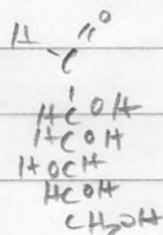 H O
C
HCOH
HCOH
HOCH
HCOH
CH₂OH